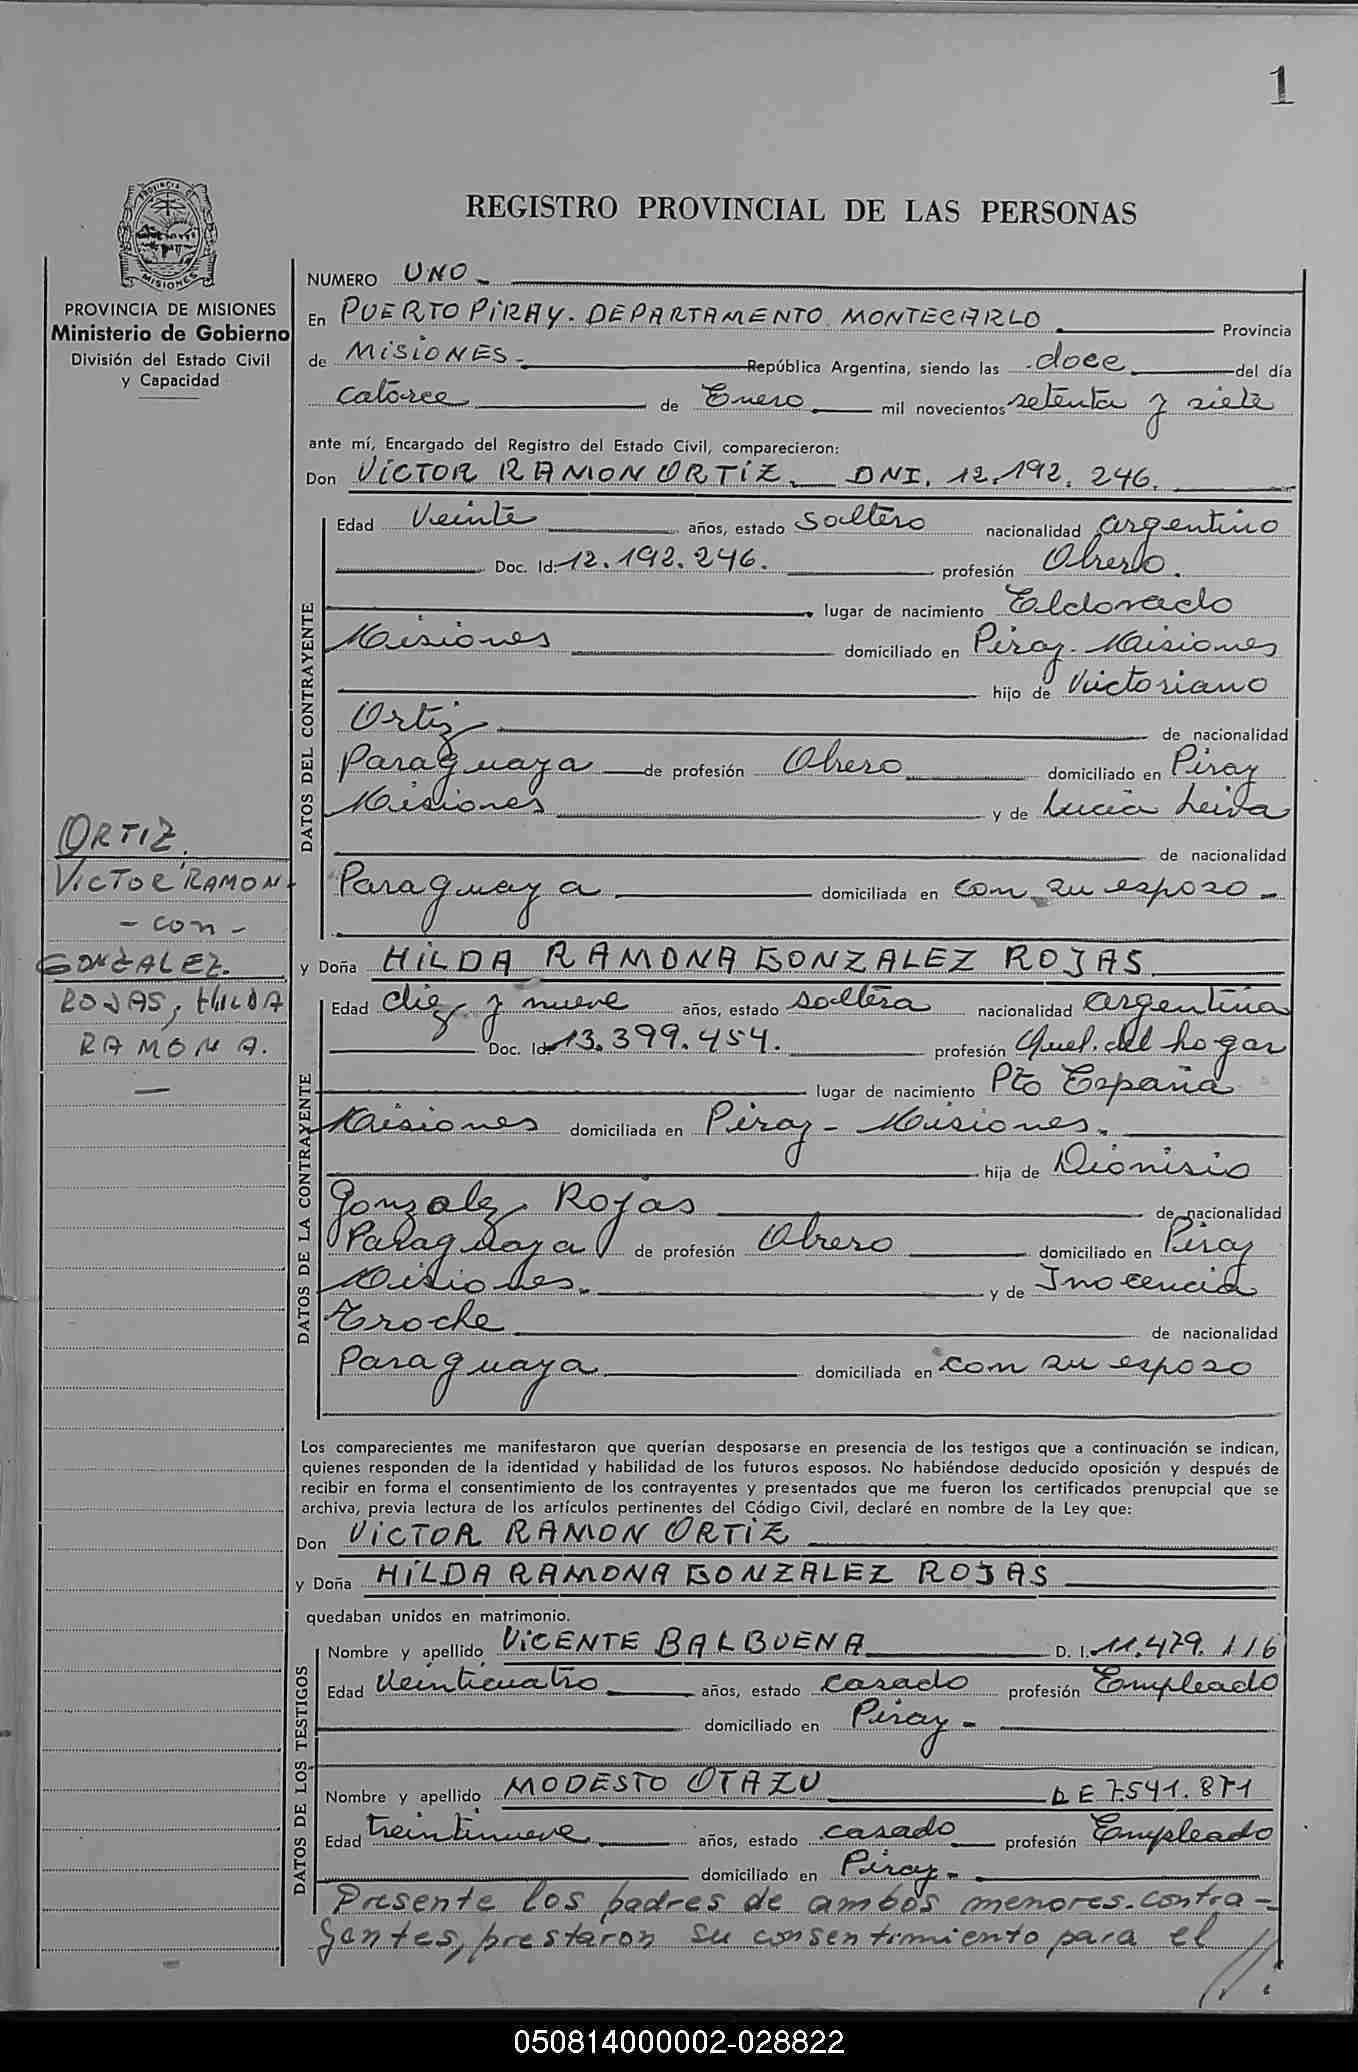 1
REGISTRO PROVINCIAL DE LAS PERSONAS
PROVINCIA DE
MISIONES
PROVINCIA DE MISIONES
Ministerio de Gobierno
División del Estado Civil
y Capacidad
ORTIZ,
VICTOR RAMON
- con -
GONZALEZ
ROJAS, HILDA
RAMONA.
NUMERO UNO
En PUERTO PIRAY. DEPARTAMENTO MONTECARLO Provincia
de MISIONES República Argentina, siendo las doce del día
catorce de Enero mil novecientos setenta y siete
ante mí, Encargado del Registro del Estado Civil, comparecieron:
Don VICTOR RAMON ORTIZ DNI. 12.192.246.
DATOS DEL CONTRAYENTE
Edad veinte años, estado soltero nacionalidad argentino
Doc. Id: 12.192.246. profesión Obrero.
lugar de nacimiento Eldorado
Misiones domiciliado en Piray - Misiones
hijo de Victoriano
Ortiz de nacionalidad
Paraguaya de profesión Obrero domiciliado en Piray
Misiones y de Lucia Leiva
de nacionalidad
Paraguaya domiciliada en con su esposo -
y Doña HILDA RAMONA GONZALEZ ROJAS
DATOS DE LA CONTRAYENTE
Edad diez y nueve años, estado soltera nacionalidad argentina
Doc. Id: 13.399.454. profesión Quel. del hogar
lugar de nacimiento Pto España
Misiones domiciliada en Piray - Misiones.
hija de Dionisio
Gonzalez Rojas de nacionalidad
Paraguaya de profesión Obrero domiciliado en Piray
Misiones. y de Inocencia
Troche de nacionalidad
Paraguaya domiciliada en con su esposo
Los comparecientes me manifestaron que querían desposarse en presencia de los testigos que a continuación se indican,
quienes responden de la identidad y habilidad de los futuros esposos. No habiéndose deducido oposición y después de
recibir en forma el consentimiento de los contrayentes y presentados que me fueron los certificados prenupcial que se
archiva, previa lectura de los artículos pertinentes del Código Civil, declaré en nombre de la Ley que:
Don VICTOR RAMON ORTIZ
y Doña HILDA RAMONA GONZALEZ ROJAS
quedaban unidos en matrimonio.
DATOS DE LOS TESTIGOS
Nombre y apellido VICENTE BALBUENA D. I. 11.479.116
Edad veinticuatro años, estado casado profesión Empleado
domiciliado en Piray -
Nombre y apellido MODESTO OTAZU LE 7.541.871
Edad treintinueve años, estado casado profesión Empleado
domiciliado en Piray -
Presente los padres de ambos menores contra-
yentes, prestaron su consentimiento para el //.
050814000002-028822